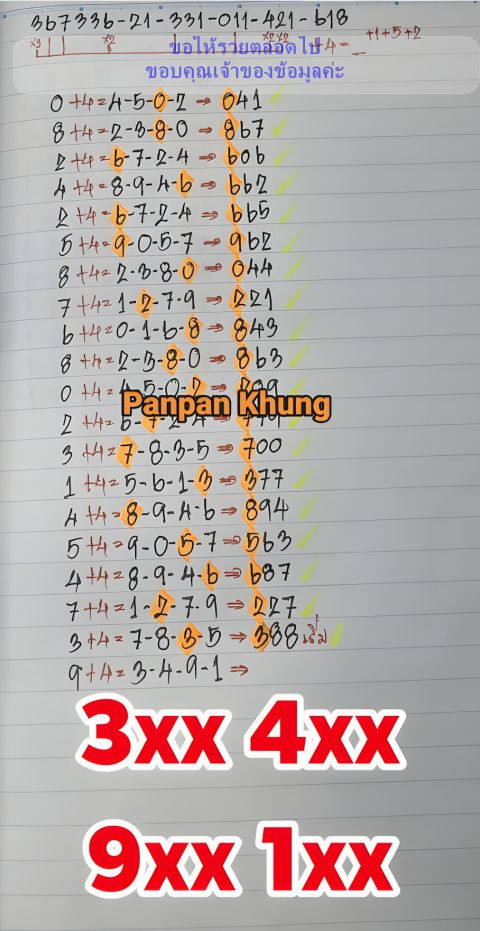 367336-21-331-011-421-618
x9 x2 x2 x2 +4 = _ +1+5+2
ขอให้รวยตลอดไป
ขอบคุณเจ้าของข้อมูลค่ะ
0 +4 = 4-5-0-2 ⇒ 041
8 +4 = 2-3-8-0 ⇒ 867
2 +4 = 6-7-2-4 ⇒ 606
4 +4 = 8-9-4-6 ⇒ 662
2 +4 = 6-7-2-4 ⇒ 665
5 +4 = 9-0-5-7 ⇒ 962
8 +4 = 2-3-8-0 ⇒ 044
7 +4 = 1-2-7-9 ⇒ 221
6 +4 = 0-1-6-8 ⇒ 843
8 +4 = 2-3-8-0 ⇒ 863
0 +4 = 4-5-0-2
2 +4 = 6-7-2-4
Panpan Khung
3 +4 = 7-8-3-5 ⇒ 700
1 +4 = 5-6-1-3 ⇒ 377
4 +4 = 8-9-4-6 ⇒ 894
5 +4 = 9-0-5-7 ⇒ 563
4 +4 = 8-9-4-6 ⇒ 687
7 +4 = 1-2-7-9 ⇒ 227
3 +4 = 7-8-3-5 ⇒ 388 เริ่ม
9 +4 = 3-4-9-1 ⇒
3xx 4xx
9xx 1xx